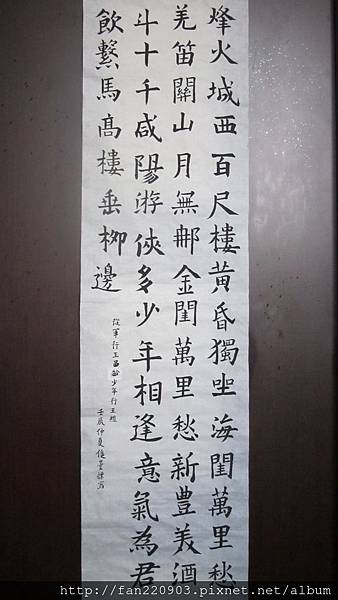 烽火城西百尺樓黃昏獨坐海閨萬里愁
羌笛關山月無那金閨萬里愁新豊美酒
斗十千咸陽游俠多少年相逢意氣為君
飲繫馬高樓垂柳邊
從軍行王昌齡少年行王維
壬辰仲夏
http://fan220903.pixnet.net/album